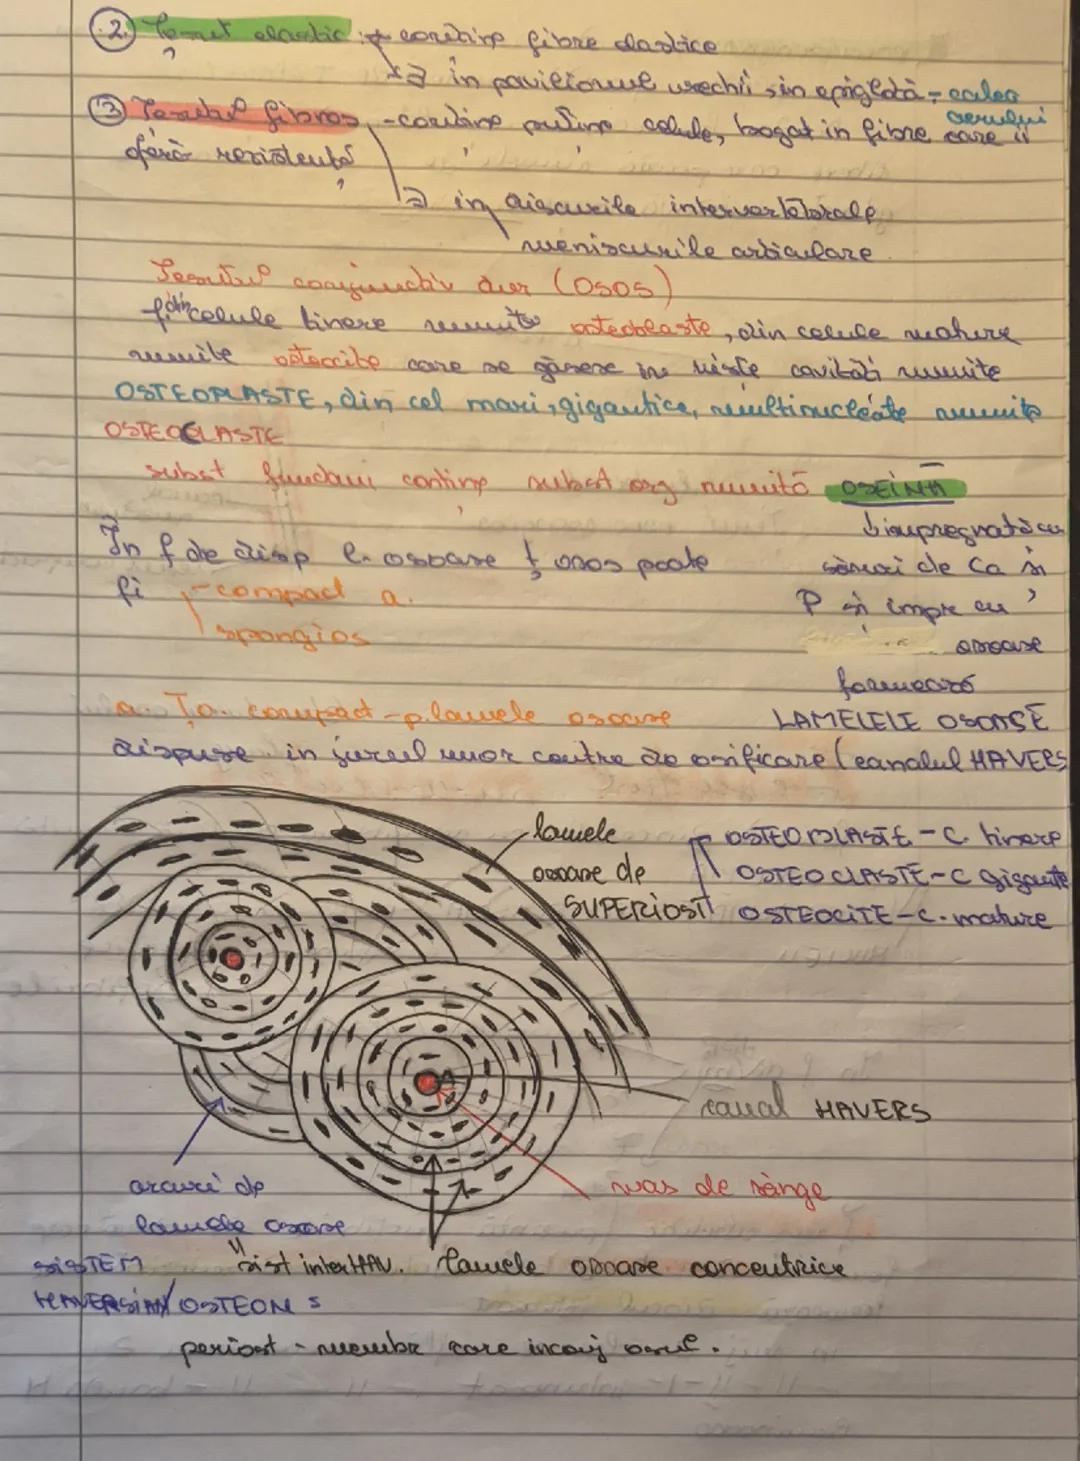 2. Țesut elastic: conține fibre elastice
∃ în pavilionul urechii, în epiglotă - calea aerului
3 Țesutul fibros - conține puține celule, bogat în fibre care îi
oferă rezistență
∃ în discurile intervertebrale
meniscurile articulare
Țesutul conjunctiv dur (OSOS)
f. din celule tinere numite osteoblaste, din celule mature
numite osteocite care se găsesc în niște cavități numite
OSTEOPLASTE, din cel mari, gigantice, multinucleate numite
OSTEOCLASTE
subst fundam conține subst org numită OSEINĂ
În f de disp l. osoase ț osos poate
fi - compact a.
spongios
impregnată cu
săruri de Ca și
P și impre cu
osoase
formează
LAMELELE OSOASE
a. Țo. compact - p. lamele osoase
dispuse în jurul unor centre de osificare (canalul HAVERS
lamele
osoase de
SUPERIOST
OSTEOBLASTE - C. tinere
OSTEOCLASTE - C gigante
OSTEOCITE - C. mature
canal HAVERS
vas de sânge
arcuri de
lamele osoase
sist interHAV.
lamele osoase concentrice
SISTEM
HAVERSIAN/OSTEON
periost - membr care înconj osul.